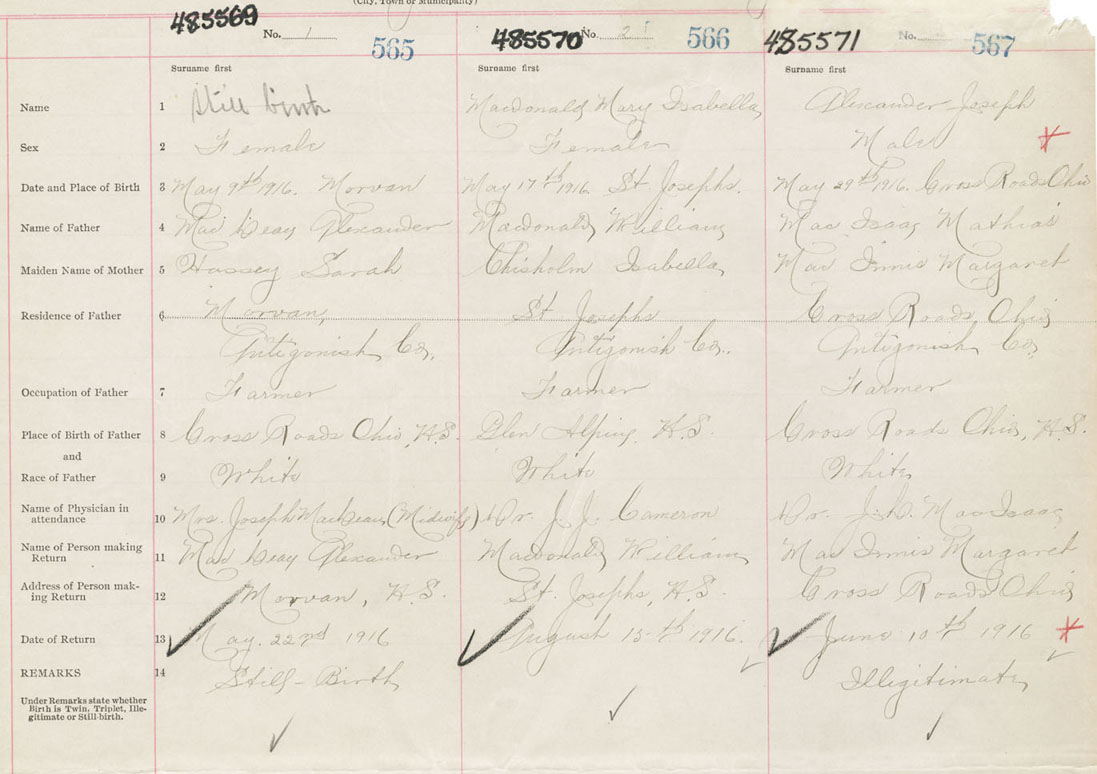 (City, Town or Municipality)
485569 No. 1 565 485570 No. 2 566 485571 No. 567
Surname first Surname first Surname first
Name 1 Still birth Macdonald, Mary Isabella, Alexander Joseph
Sex 2 Female Female Male
Date and Place of Birth 3 May 9th 1916. Morvan May 17th 1916. St. Josephs. May 29th 1916. Cross Roads Ohio
Name of Father 4 Alexander Macdonald, William, Mac Isaac, Mathias
Maiden Name of Mother 5 Hussey Sarah Chisholm Isabella, Mac Innis Margaret
Residence of Father 6 Morvan, St. Josephs Cross Roads, Ohio,
Antigonish, Co., Antigonish Co., Antigonish, Co,
Occupation of Father 7 Farmer Farmer Farmer
Place of Birth of Father 8 Cross Roads Ohio, N.S. Glen Alpine, N.S. Cross Roads Ohio, N.S.
and
Race of Father 9 White White White,
Name of Physician in
attendance 10 Mrs. Joseph (Midwife) Dr. J. J. Cameron Dr. Mac Isaac,
Name of Person making
Return 11 Alexander Macdonald, William, Mac Innis Margaret
Address of Person mak-
ing Return 12 Morvan, N.S. St. Josephs, N.S. Cross Roads Ohio,
Date of Return 13 May. 22nd 1916 August 15th 1916. June 10th 1916
REMARKS 14 Still-Birth Illegitimate,
Under Remarks state whether
Birth is Twin, Triplet, Ille-
gitimate or Still-birth.